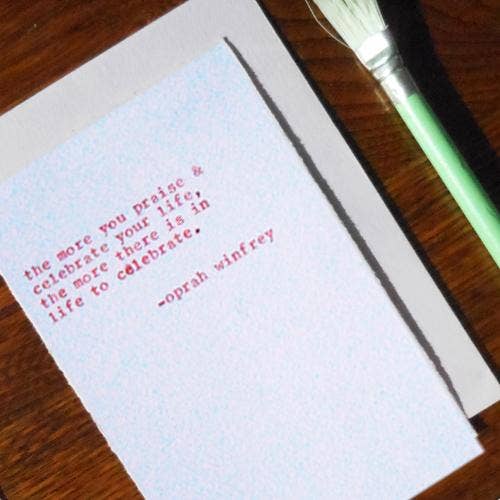 the more you praise &
celebrate your life,
the more there is in
life to celebrate.
-oprah winfrey